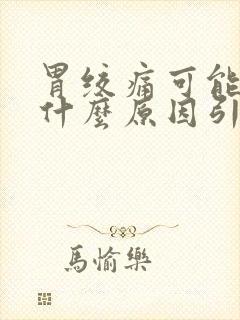 胃绞痛可能
什麼原因引
馬愉樂